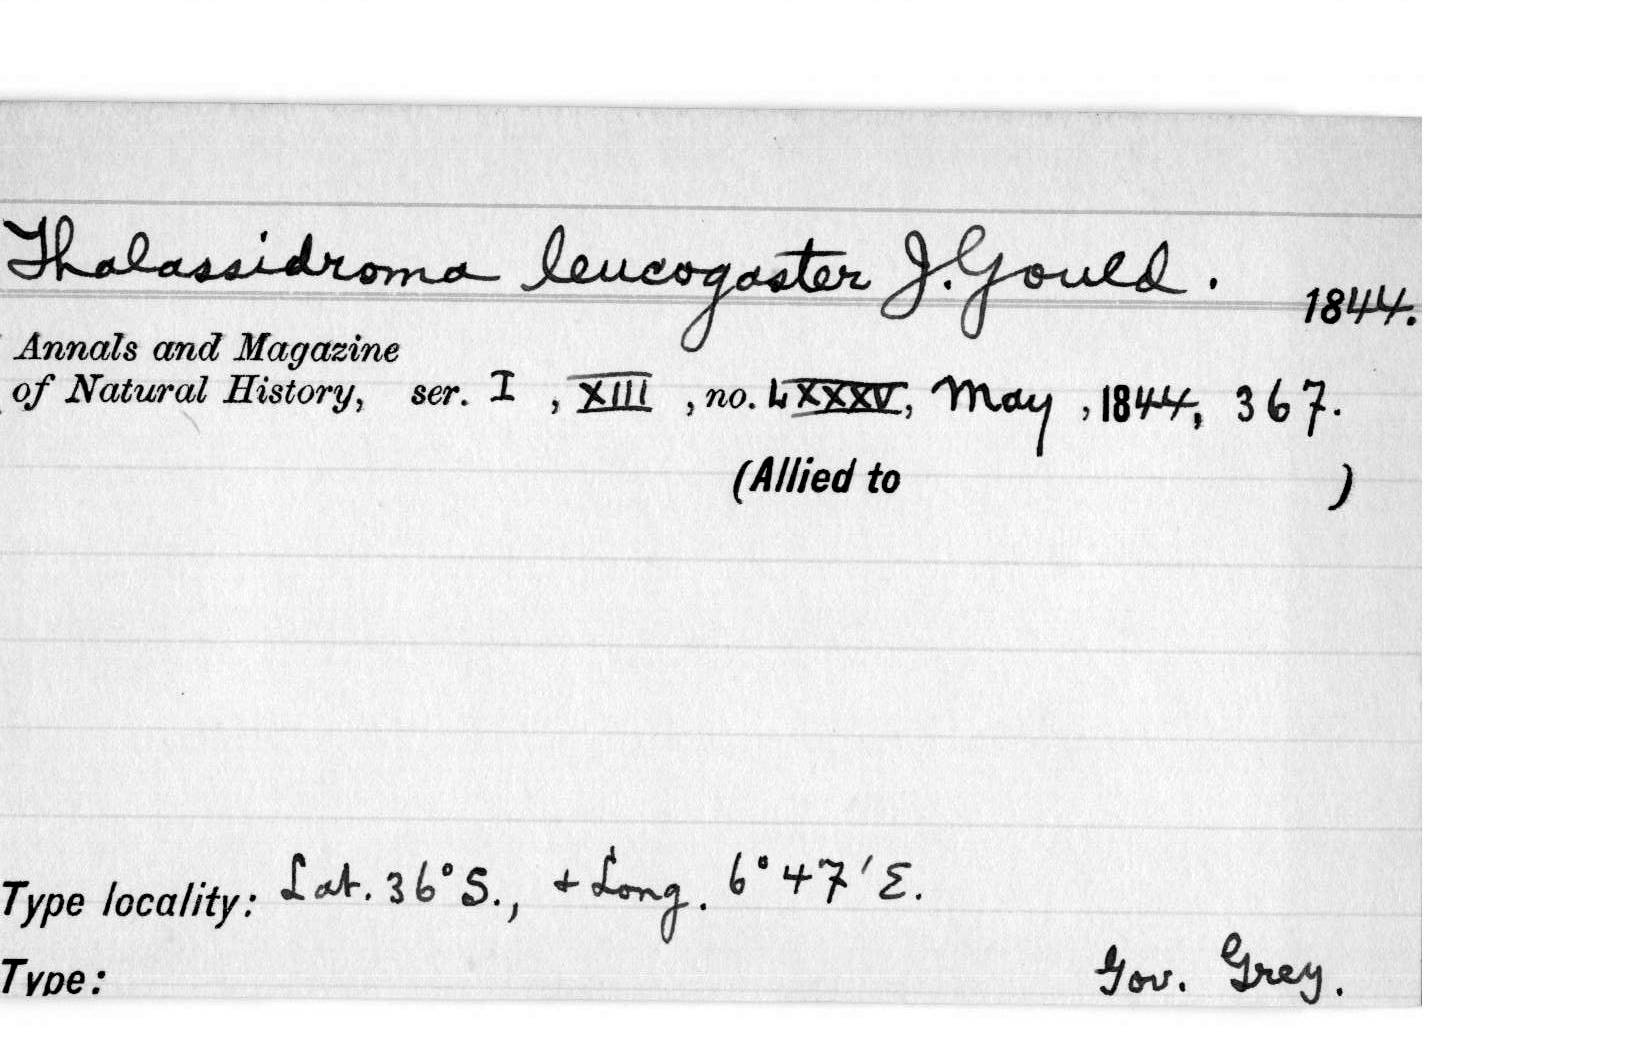 Thalassidroma leucogaster J. Gould.
1844.
Annals and Magazine
of Natural History, ser. I , XIII , no. LXXXV, May , 1844, 367.
(Allied to )
Type locality: Lat. 36° S., + Long. 6° 47' E.
Type: Gov. Grey.